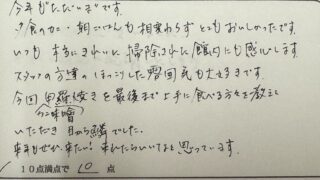 今年も"ただいま"です。
夕食のカニ・朝ごはんも相変わらずとてもおいしかったです。
いつも本当にきれいに掃除された館内にも感心します。
スタッフの方達のほっこりした習田民も大好きです。
今回 甲羅焼きを最後まで上手に食べる方法を教え
カニ味噌
いただき 目から鱗でした。
来年もぜひ来たい!来れたらいいなと思っています。
10点満点で 10 点